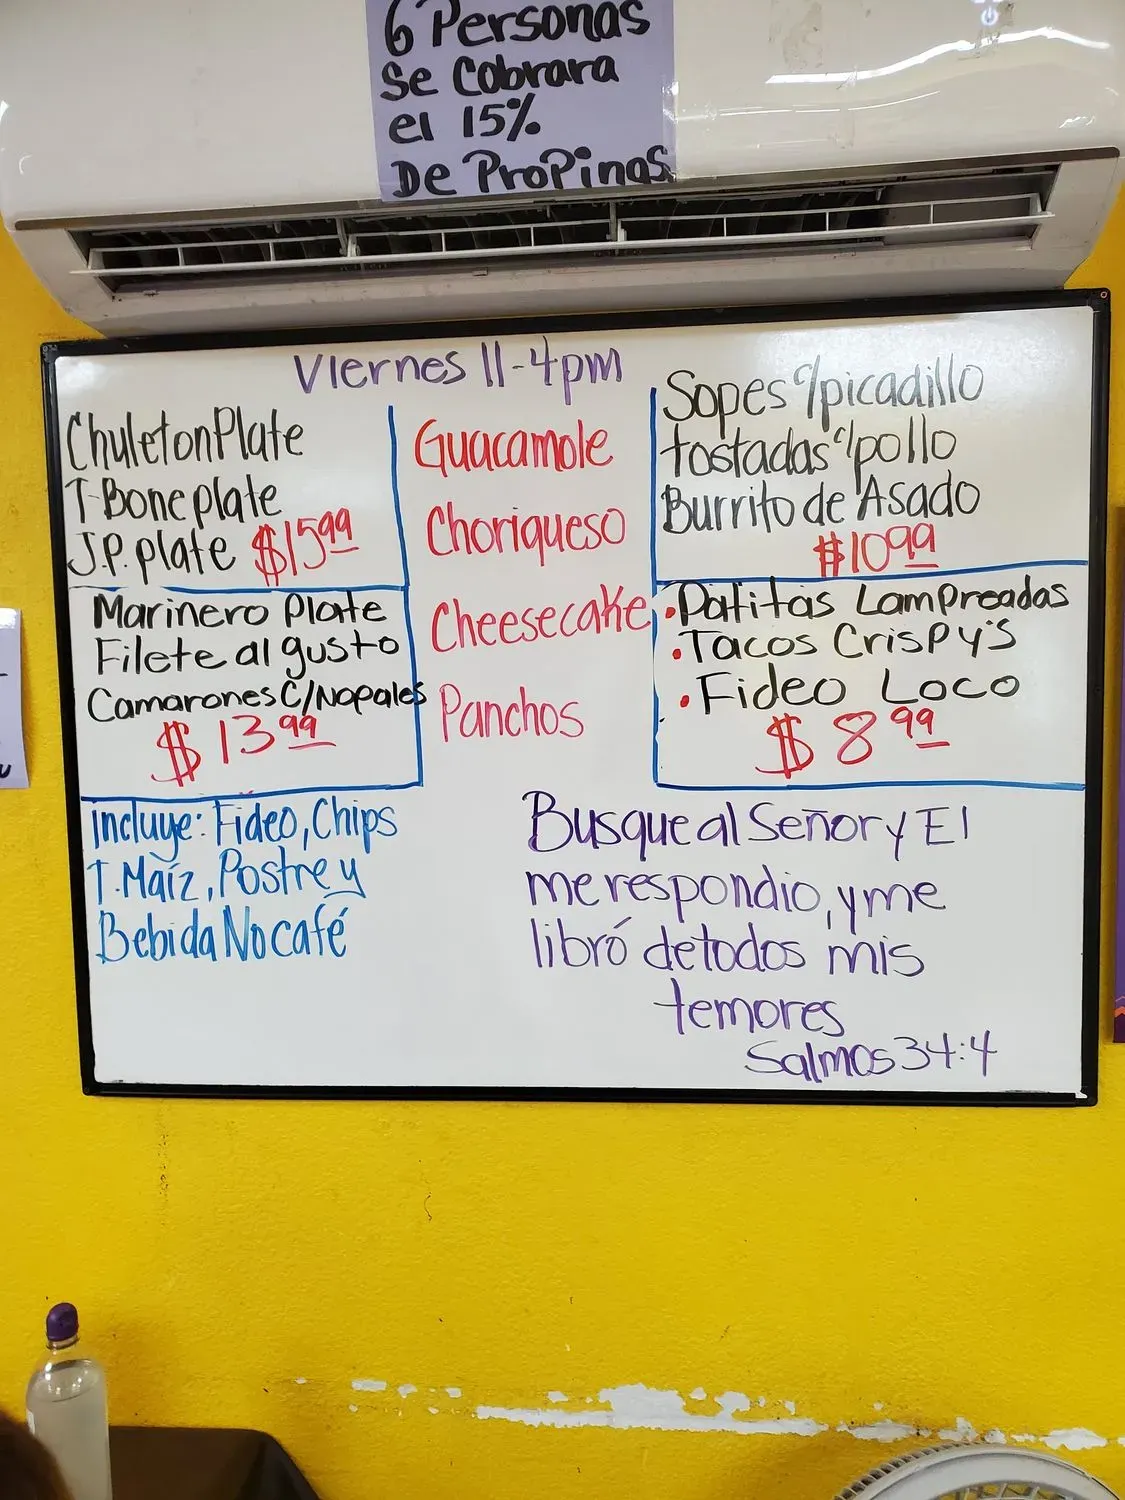 6 Personas
Se Cobrara
el 15%
De Propinas
Viernes 11-4pm
Chuleton Plate
T-Bone plate
J.P. plate $15.99
Marinero Plate
Filete al gusto
Camarones C/Nopales
$13.99
incluye: Fideo, Chips
T. Maíz, Postre y
Bebida No café
Guacamole
Choriqueso
Cheesecake
Panchos
Sopes c/picadillo
tostadas c/pollo
Burrito de Asado
$10.99
• Patitas Lampreadas
• Tacos Crispy's
• Fideo Loco
$8.99
Busque al Señor y El
me respondio, y me
libró de todos mis
temores
Salmos 34:4